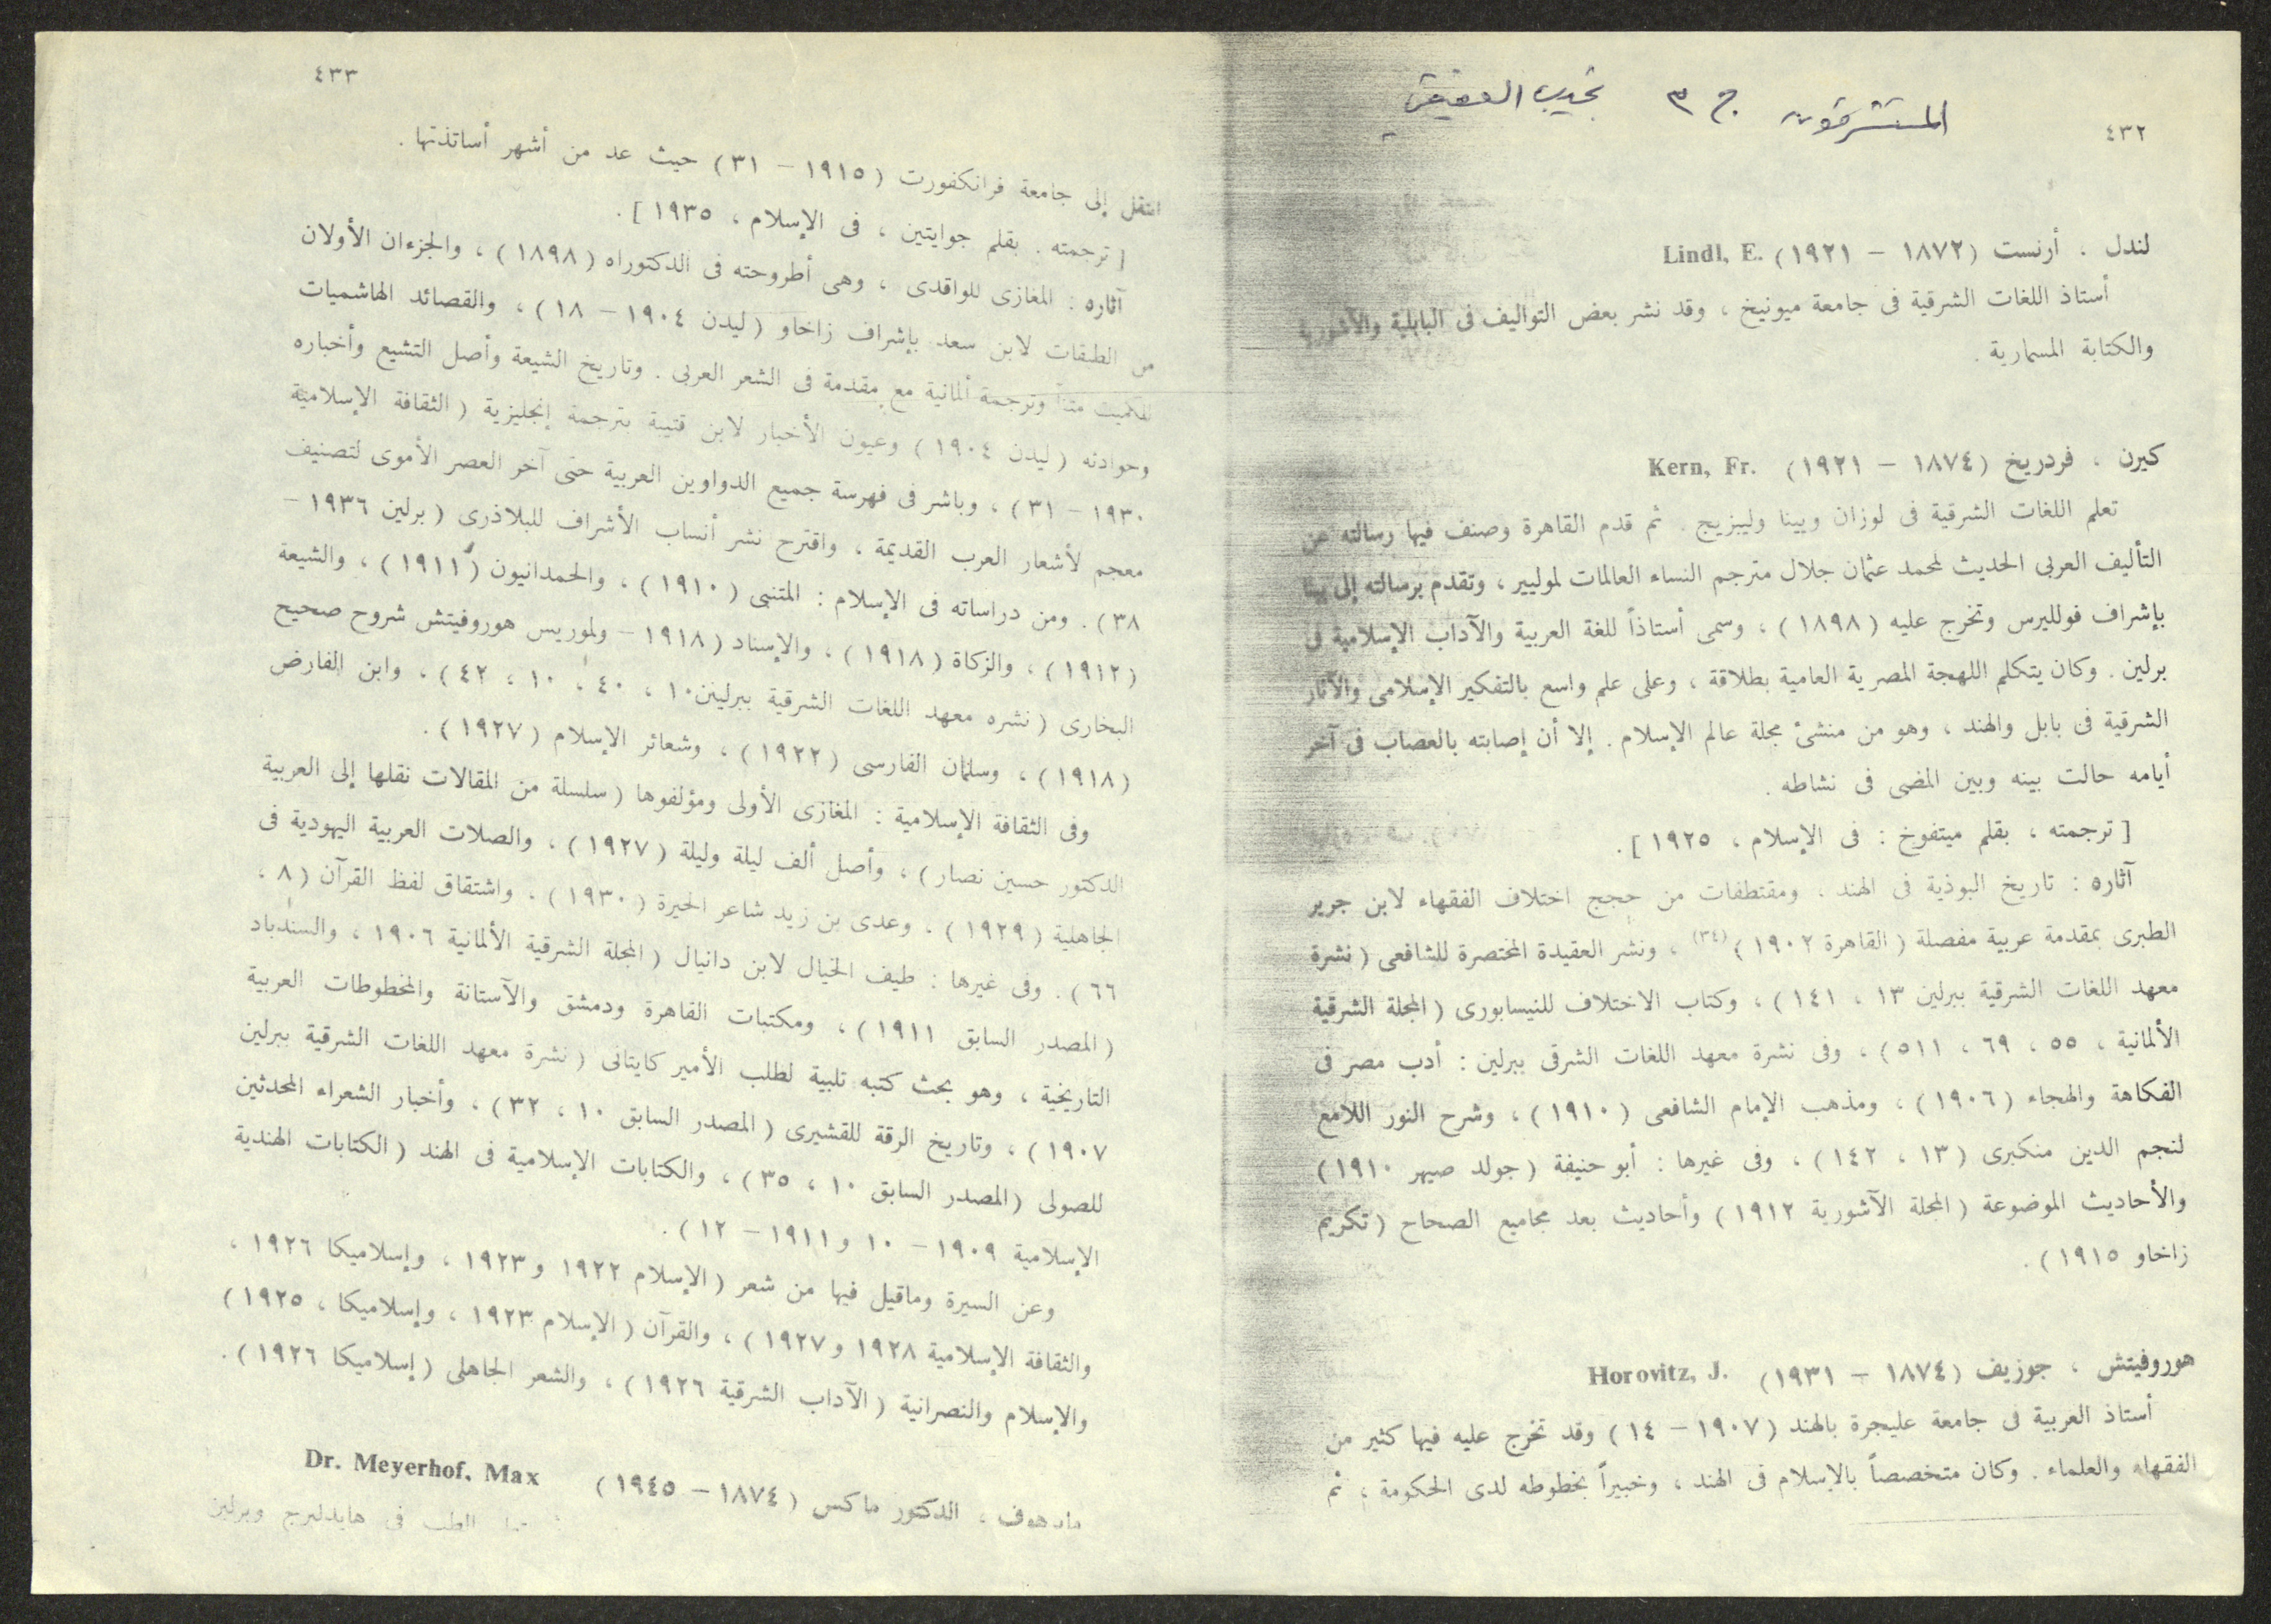 المستشرقون ج ٣ نجيب العقيقي
٤٣٢
لندل ، أرنست (١٨٧٢ – ١٩٢١) Lindl, E.
أستاذ اللغات الشرقية فى جامعة ميونيخ ، وقد نشر بعض التواليف فى البابلية والآشورية
والكتابة المسمارية .
كيرن ، فردريخ (١٨٧٤ – ١٩٢١) Kern, Fr.
تعلم اللغات الشرقية فى لوزان ويينا وليبزيج . ثم قدم القاهرة وصنف فيها رسالته عن
التأليف العربى الحديث لمحمد عثمان جلال مترجم النساء العالمات لموليير ، وتقدم برسالته إلى يينا
بإشراف فولليرس وتخرج عليه (١٨٩٨) ، وسمى أستاذاً للغة العربية والآداب الإسلامية فى
برلين . وكان يتكلم اللهجة المصرية العامية بطلاقة ، وعلى علم واسع بالتفكير الإسلامى والآثار
الشرقية فى بابل والهند ، وهو من منشئ مجلة عالم الإسلام . إلا أن إصابته بالعصاب فى آخر
أيامه حالت بينه وبين المضى فى نشاطه .
[ ترجمته ، بقلم ميتفوخ : فى الإسلام ، ١٩٢٥ ] .
آثاره : تاريخ البوذية فى الهند ، ومقتطفات من حجج اختلاف الفقهاء لابن جرير
الطبرى بمقدمة عربية مفصلة ( القاهرة ١٩٠٢ ) (٣٤) ، ونشر العقيدة المختصرة للشافعى ( نشرة
معهد اللغات الشرقية ببرلين ١٣ ، ١٤١ ) ، وكتاب الاختلاف للنيسابورى ( المجلة الشرقية
الألمانية ، ٥٥ ، ٦٩ ، ٥١١ ) ، وفى نشرة معهد اللغات الشرقى ببرلين : أدب مصر فى
الفكاهة والهجاء (١٩٠٦) ، ومذهب الإمام الشافعى (١٩١٠) ، وشرح النور اللامع
لنجم الدين منكبرى (١٣ ، ١٤٢) ، وفى غيرها : أبو حنيفة (جولد صيهر ١٩١٠)
والأحاديث الموضوعة ( المجلة الآشورية ١٩١٢ ) وأحاديث بعد مجاميع الصحاح ( تكريم
زاخاو ١٩١٥ ) .
هوروفيتش ، جوزيف (١٨٧٤ – ١٩٣١) Horovitz, J.
أستاذ العربية فى جامعة عليجرة بالهند (١٩٠٧ – ١٤) وقد تخرج عليه فيها كثير من
الفقهاء والعلماء . وكان متخصصاً بالإسلام فى الهند ، وخبيراً بخطوطه لدى الحكومة ، ثم
٤٣٣
انتقل إلى جامعة فرانكفورت (١٩١٥ – ٣١) حيث عد من أشهر أساتذتها .
[ ترجمته . بقلم جوايتين ، فى الإسلام ، ١٩٣٥ ] .
آثاره : المغازى للواقدى ، وهى أطروحته فى الدكتوراه (١٨٩٨) ، والجزءان الأولان
من الطبقات لابن سعد بإشراف زاخاو (ليدن ١٩٠٤ – ١٨) ، والقصائد الهاشميات
للكميت متناً وترجمة ألمانية مع مقدمة فى الشعر العربى . وتاريخ الشيعة وأصل التشيع وأخباره
وحوادثه (ليدن ١٩٠٤) وعيون الأخبار لابن قتيبة بترجمة إنجليزية ( الثقافة الإسلامية
١٩٣٠ – ٣١) ، وباشر فى فهرسة جميع الدواوين العربية حتى آخر العصر الأموى لتصنيف
معجم لأشعار العرب القديمة ، واقترح نشر أنساب الأشراف للبلاذرى ( برلين ١٩٣٦ –
٣٨) . ومن دراساته فى الإسلام : المتنبى (١٩١٠) ، والحمدانيون (١٩١١) ، والشيعة
(١٩١٢) ، والزكاة (١٩١٨) ، والإسناد (١٩١٨ – ولموريس هوروفيتش شروح صحيح
البخارى ( نشره معهد اللغات الشرقية ببرلين ١٠ ، ٤٠ ، ١٠ ، ٤٢) ، وابن الفارض
(١٩١٨) ، وسلمان الفارسى (١٩٢٢) ، وشعائر الإسلام (١٩٢٧) .
وفى الثقافة الإسلامية : المغازى الأولى ومؤلفوها ( سلسلة من المقالات نقلها إلى العربية
الدكتور حسين نصار ) ، وأصل ألف ليلة وليلة (١٩٢٧) ، والصلات العربية اليهودية فى
الجاهلية (١٩٢٩) ، وعدى بن زيد شاعر الحيرة (١٩٣٠) ، واشتقاق لفظ القرآن ( ٨ ،
٦٦ ) . وفى غيرها : طيف الخيال لابن دانيال ( المجلة الشرقية الألمانية ١٩٠٦ ، والسندباد
( المصدر السابق ١٩١١ ) ، ومكتبات القاهرة ودمشق والآستانة والمخطوطات العربية
التاريخية ، وهو بحث كتبه تلبية لطلب الأمير كايتانى ( نشرة معهد اللغات الشرقية ببرلين
١٩٠٧ ) ، وتاريخ الرقة للقشيرى ( المصدر السابق ١٠ ، ٣٢ ) ، وأخبار الشعراء المحدثين
للصولى ( المصدر السابق ١٠ ، ٣٥ ) ، والكتابات الإسلامية فى الهند ( الكتابات الهندية
الإسلامية ١٩٠٩ – ١٠ و ١٩١١ – ١٢ ) .
وعن السيرة وماقيل فيها من شعر ( الإسلام ١٩٢٢ و ١٩٢٣ ، وإسلاميكا ١٩٢٦ ،
والثقافة الإسلامية ١٩٢٨ و ١٩٢٧ ) ، والقرآن ( الإسلام ١٩٢٣ ، وإسلاميكا ، ١٩٢٥ )
والإسلام والنصرانية ( الآداب الشرقية ١٩٢٦ ) ، والشعر الجاهلى ( إسلاميكا ١٩٢٦ ) .
، الدكتور ماكس (١٨٧٤ – ١٩٤٥) Dr. Meyerhof, Max
الطب فى هايدلبرج وبرلين